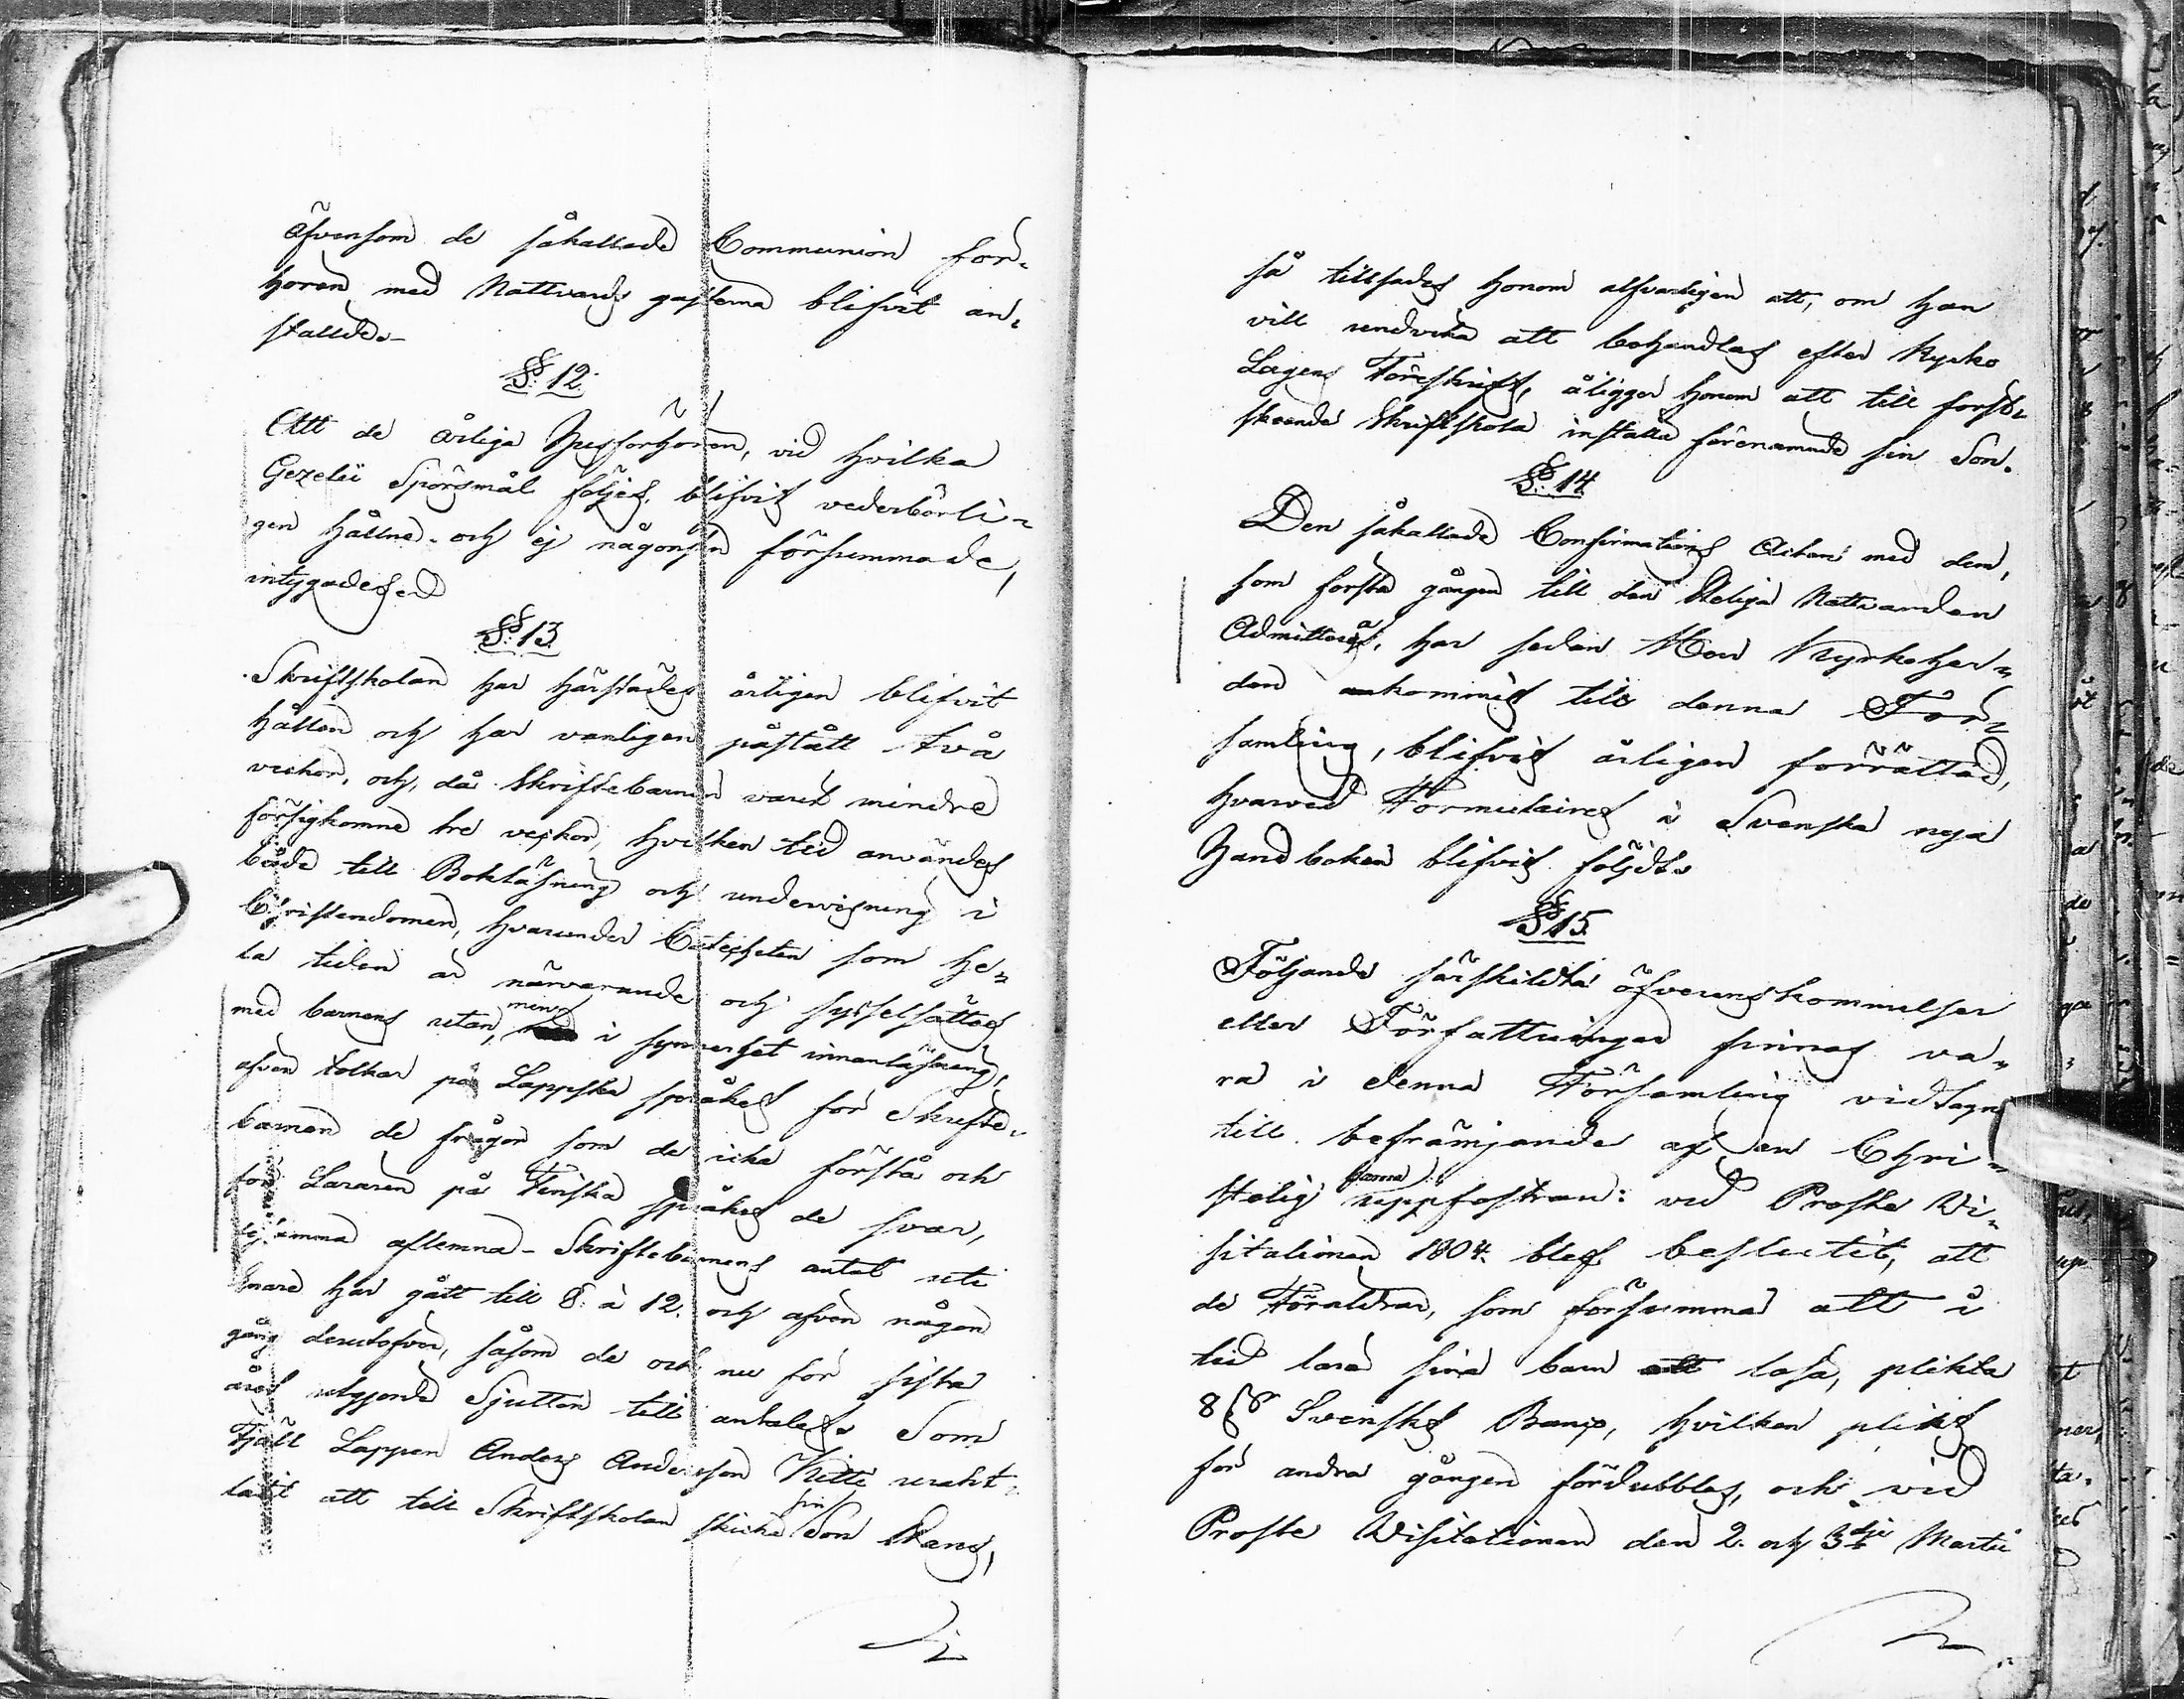 äfvensom de såkallade Communion för-
hören med Nattvards gästerna blifvit an-
stallde.
§ 12.
Att de årliga Husförhören, vid hvilka
Gezelii Spörsmål följes, blifvit vederbörli-
gen hållne och ej någonsin försummade,
intygades ed
§ 13.
Skriftskolan har härstädes årligen blifvit
hållen och har vanligen påstått två
veckor, och, då Skriftebarnen varit mindre
försigkomne tre veckor, hvilken tid användes
både till Bokläsning och undervisning i
Christendomen, hvarunder Catecheten som he-
la tiden är närvarande och sysselsättes
med barnens utan, men i synnerhet innanläsning,
afven tolkar på Lappska språket för Skrifte-
barnen de frågor som de icke förstå och
för Läraren på Finska språket de svar,
de samma aflemna. Skriftebarnens antal uti
snare har gått till 8. à 12. och afven någon
gång derutofver, såsom de och nu for sista
året utgjorde Sjutton till antalet. Som
Fjäll Lappen Anders Andersson Kitti urakt-
låtit att till Skriftskolan skicka sin Son Hans,
så tillsades honom alfvarligen att, om han
vill undvika att behandlas efter Kyrko
Lagens Föreskrift, åligger honom att till först-
skeende Skriftskola inställa förenamnde sin Son.
§ 14.
Den såkallade Confirmations Acten med dem,
som första gången till den Heliga Nattvarden
Admitteras, har sedan Herr Kyrkoher-
den ankommit till denna För-
samling, blifvit årligen förrättad,
hvarvid Formulairet i Svenska nya
Handboken blifvit följdt.
§ 15.
Följande särskildta öfverenskommelser
eller Författningar finnas va-
ra i denna Församling vidtagne
till befrämjande af en Chri-
stelig barna uppfostran: vid Proste Vi-
sitationen 1804. blef beslutit, att
de Föräldrar, som försumma att i
tid lära sina barn att läsa, plikta
8 ß Svenskt Banco, hvilken plikt
för andra gången fördubblas, och vid
Proste Visitationen den 2. och 3dje Martii